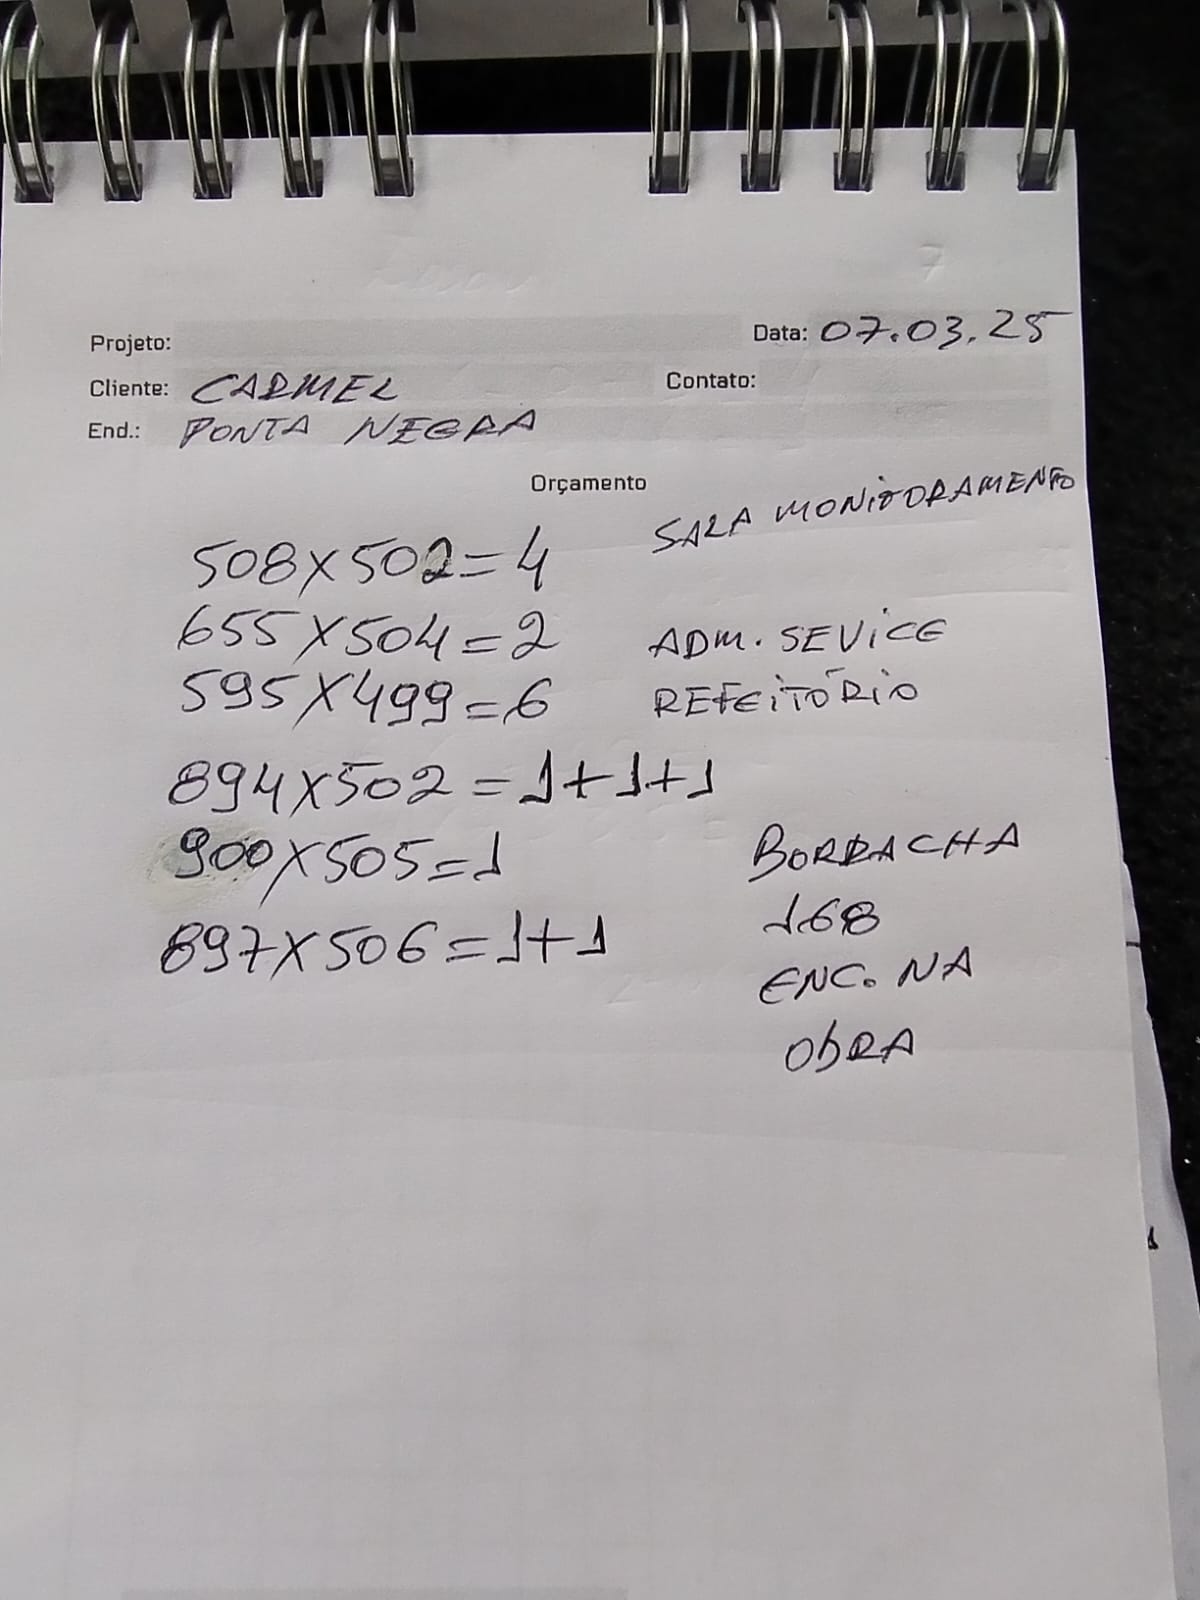 Projeto:
Data: 07.03.25
Cliente: CARMEL
Contato:
End.: PONTA NEGRA
Orçamento
508X502=4 SALA MONITORAMENTO
655X504=2 ADM. SEVICE
595X499=6 REFEITÓRIO
894X502=1+1+1
900X505=1 BORRACHA
897X506=1+1 168
ENC. NA
ObRA